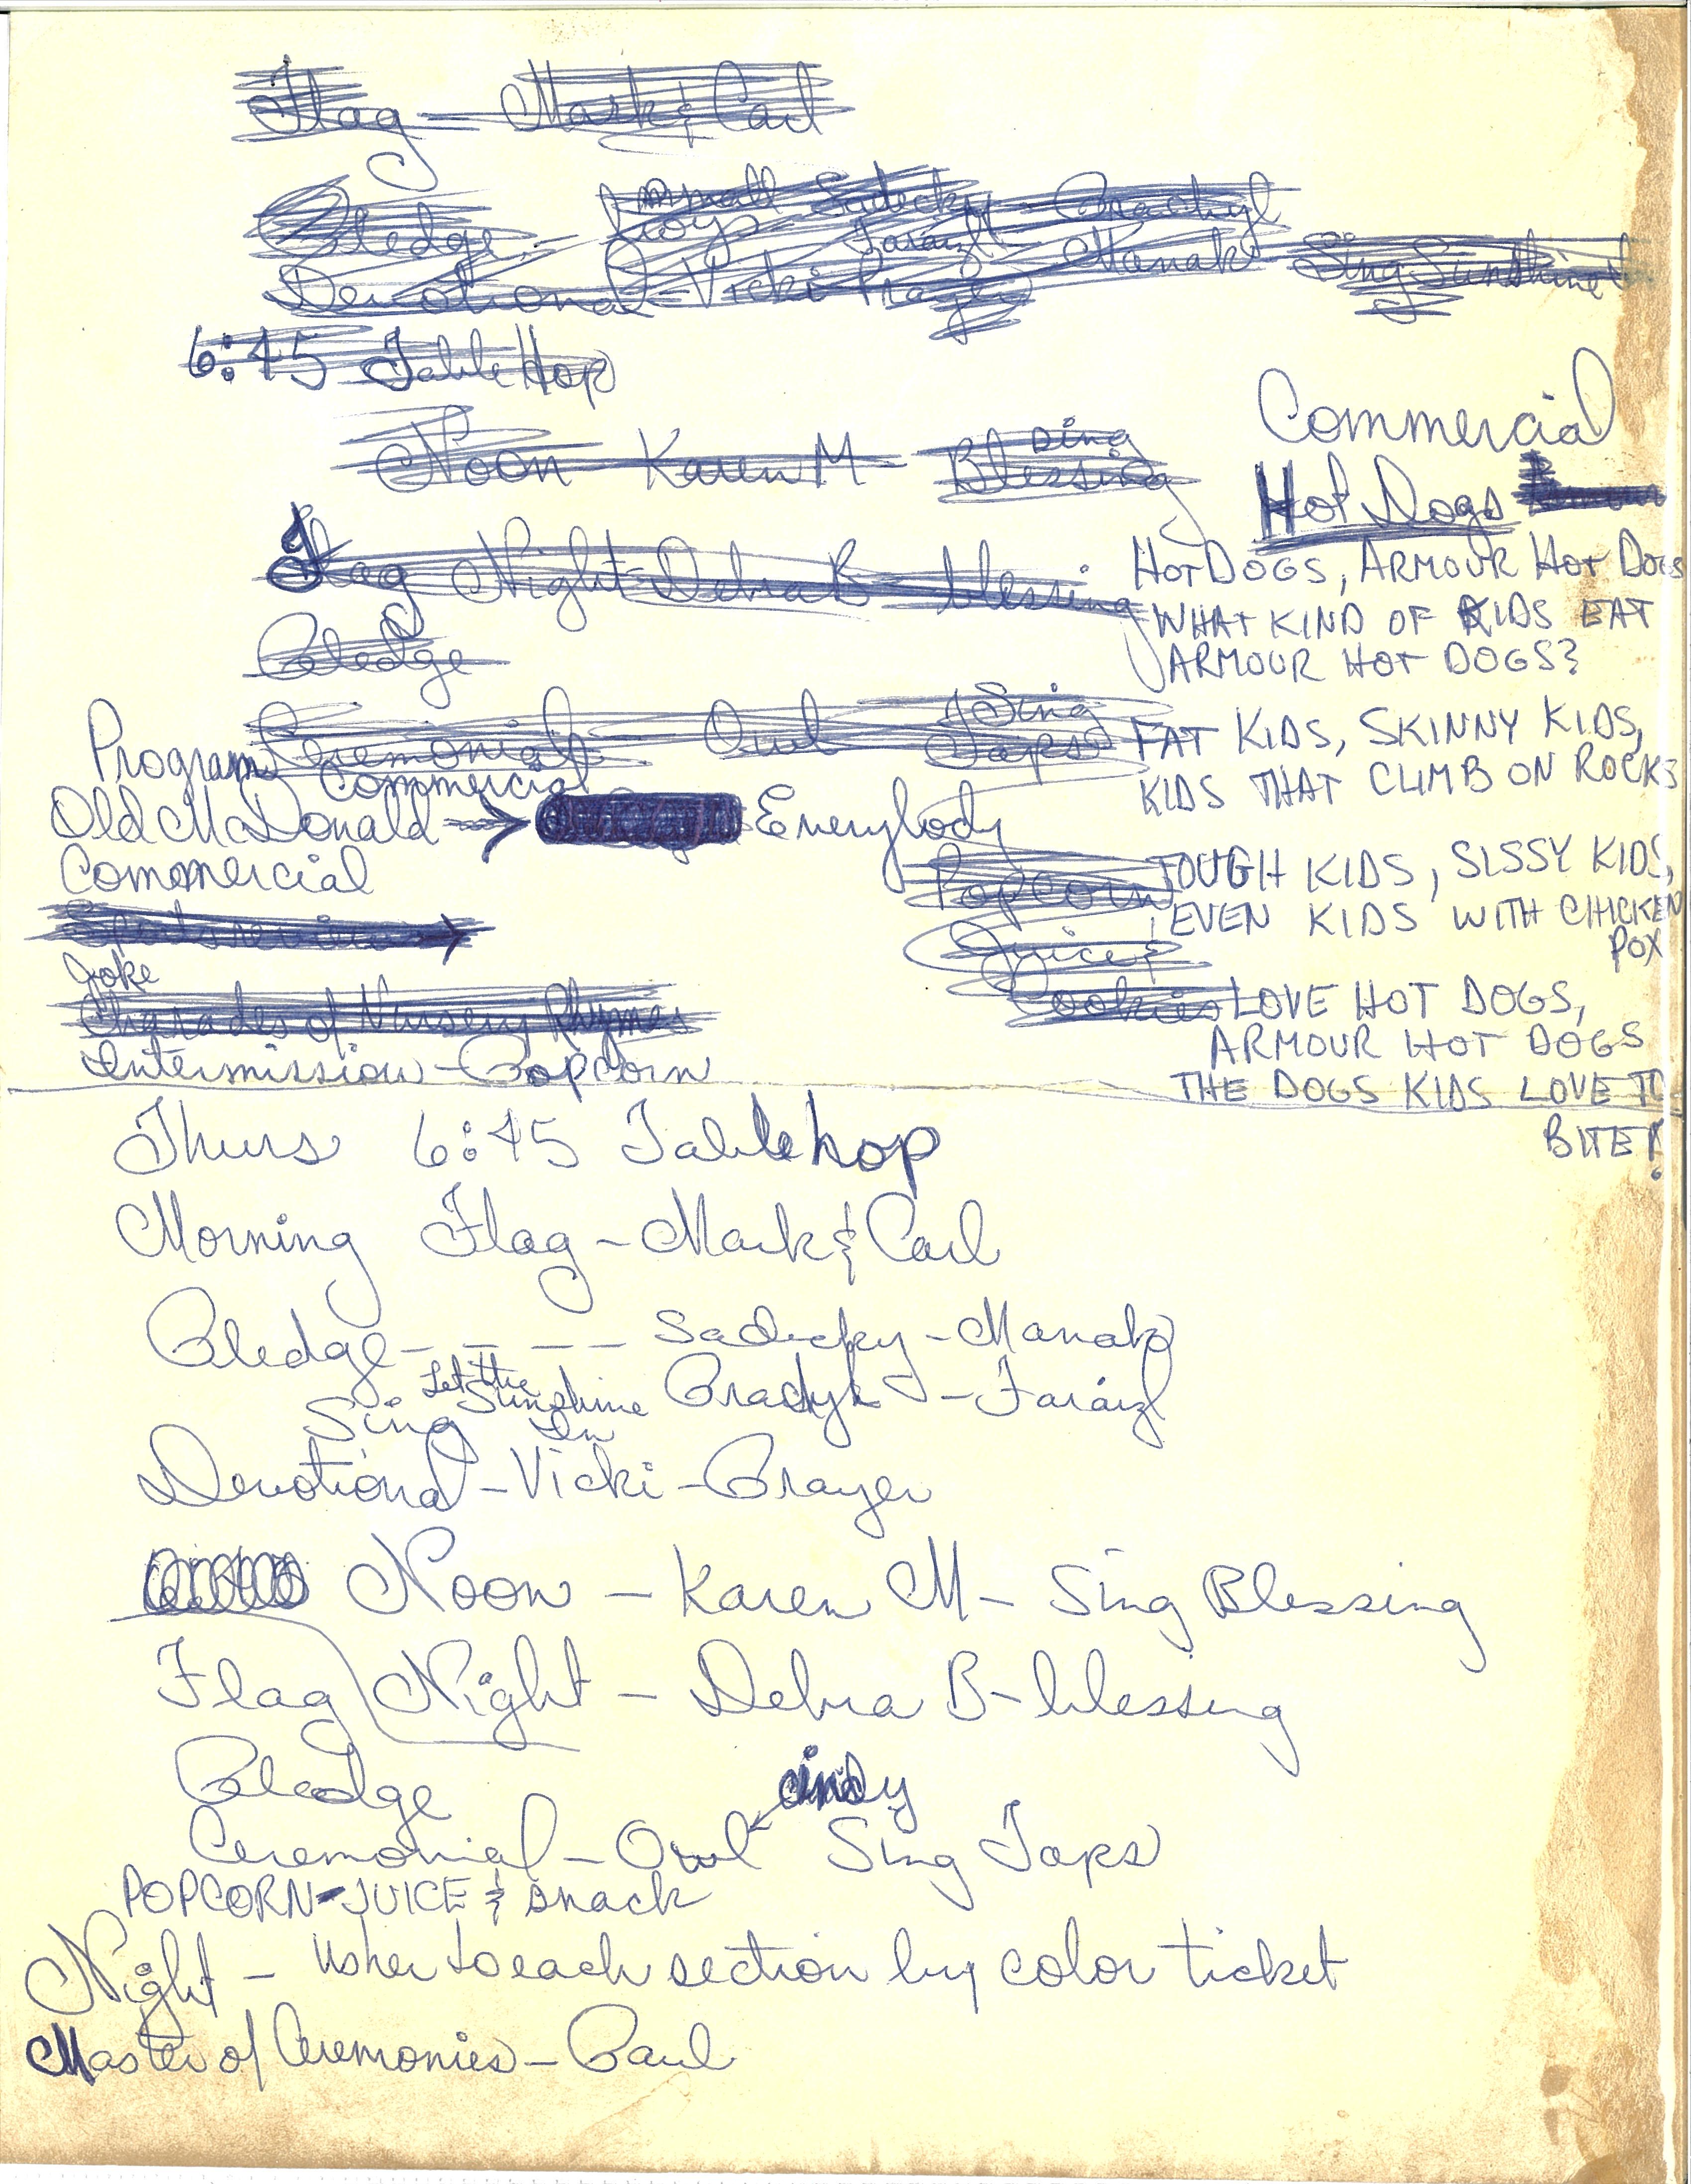 Flag - Mark & Carl
Pledge - Small Sadecky - Bradtyl
boys Faraizl - Manak Sing Sunshine
Devotional - Vicki Prayer
6:45 Table Hop
Noon - Karen M - Sing Blessing
Flag Night - Debra B - blessing
Pledge
Ceremonial - Owl Sing Taps
Program Commercial
Old McDonald → Everybody
Commercial
Popcorn
Juice &
Cookies
Joke
Charades of Nursery Rhymes
Intermission - Popcorn
Commercial
Hot Dogs
HOT DOGS, ARMOUR HOT DOGS
WHAT KIND OF KIDS EAT
ARMOUR HOT DOGS?
FAT KIDS, SKINNY KIDS,
KIDS THAT CLIMB ON ROCKS
TOUGH KIDS, SISSY KIDS,
EVEN KIDS WITH CHICKEN
POX
LOVE HOT DOGS,
ARMOUR HOT DOGS
THE DOGS KIDS LOVE TO
BITE!
Thurs 6:45 Tablehop
Morning Flag - Mark & Carl
Pledge - - - - Sadecky - Manak
Sing Let the Sunshine In - Faraizl
Devotional - Vicki - Prayer
Noon - Karen M - Sing Blessing
Flag Night - Debra B - blessing
Pledge
cindy
Ceremonial - Owl Sing Taps
POPCORN - JUICE & snack
Night - Usher to each section by color ticket
Master of Ceremonies - Paul